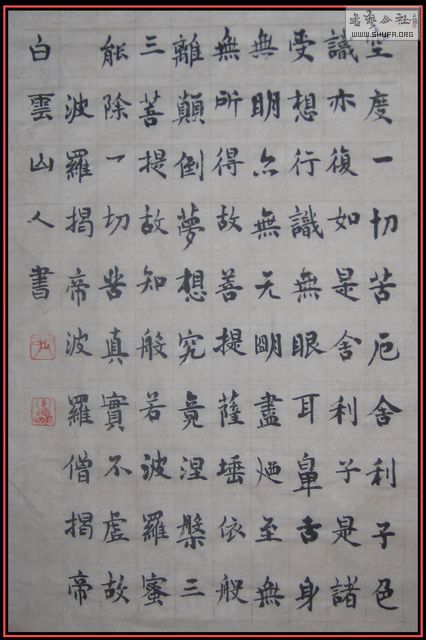 空度一切苦厄舍利子色
識亦復如是舍利子是諸
受想行識無眼耳鼻舌身
無明亦無无明盡廼至無
無所得故菩提薩埵依般
離顛倒夢想究竟涅槃三
三菩提故知般若波羅蜜
能除一切苦真實不虛故
波羅揭帝波羅僧揭帝
白雲山人書
書藝公社
WWW.SHUFA.ORG